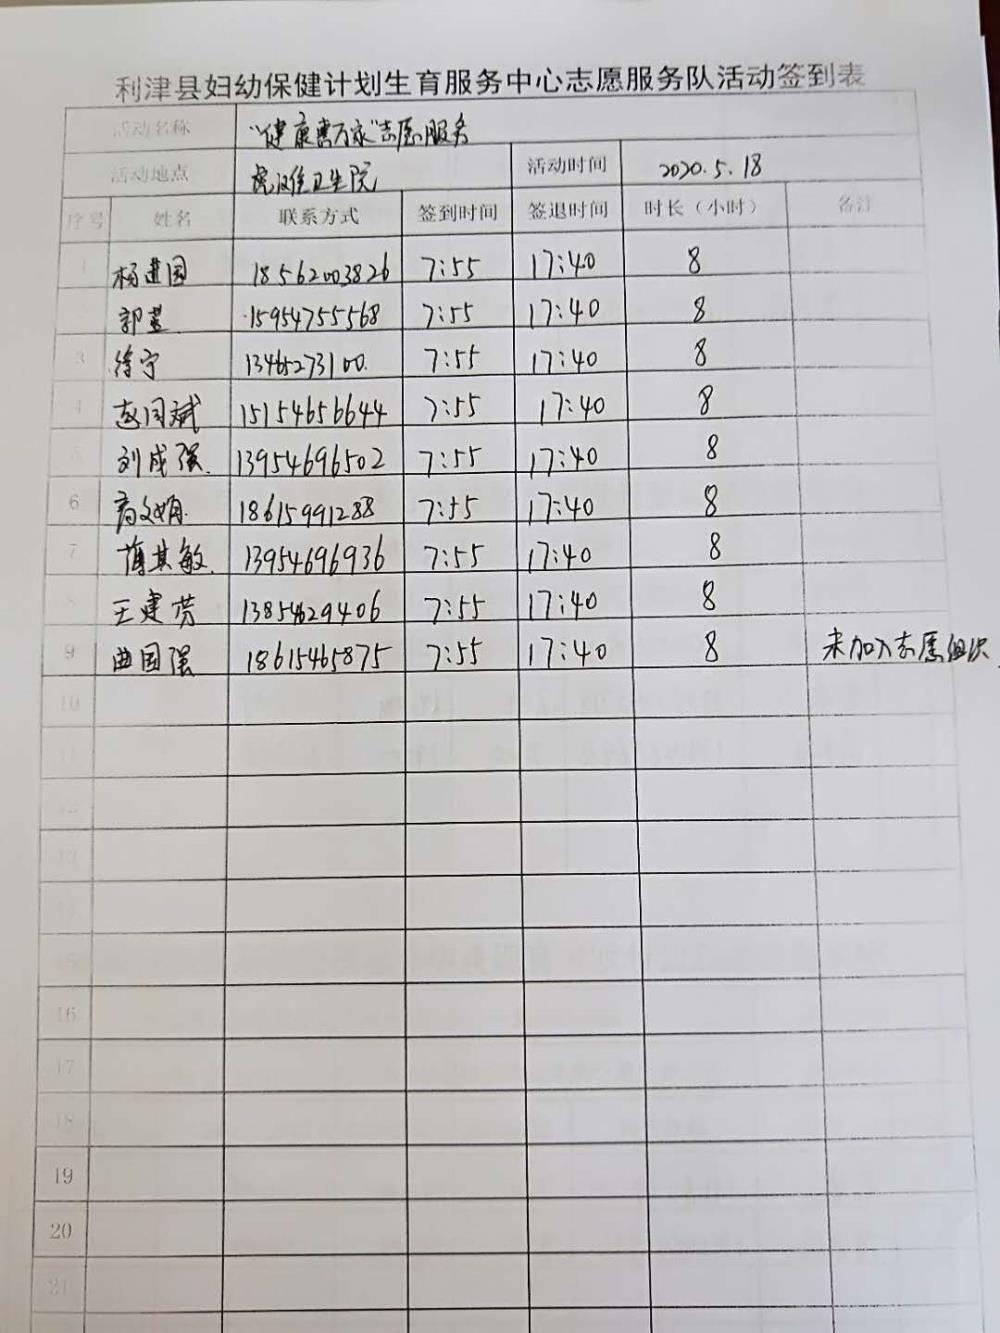 利津县妇幼保健计划生育服务中心志愿服务队活动签到表
活动名称 "健康惠万家"志愿服务
活动地点 虎滩卫生院 活动时间 2020.5.18
序号 姓名 联系方式 签到时间 签退时间 时长（小时） 备注
1 杨进国 18562003826 7:55 17:40 8
郭 15954755568 7:55 17:40 8
3 徐宁 13465273100 7:55 17:40 8
4 赵同斌 15154656644 7:55 17:40 8
5 刘成强 13954696502 7:55 17:40 8
6 高文娟 18615991288 7:55 17:40 8
7 薄其敏 13954696936 7:55 17:40 8
8 王建芳 13854629406 7:55 17:40 8
9 曲国强 18615465875 7:55 17:40 8 未加入志愿组织
10
11
12
13
14
15
16
17
18
19
20
21